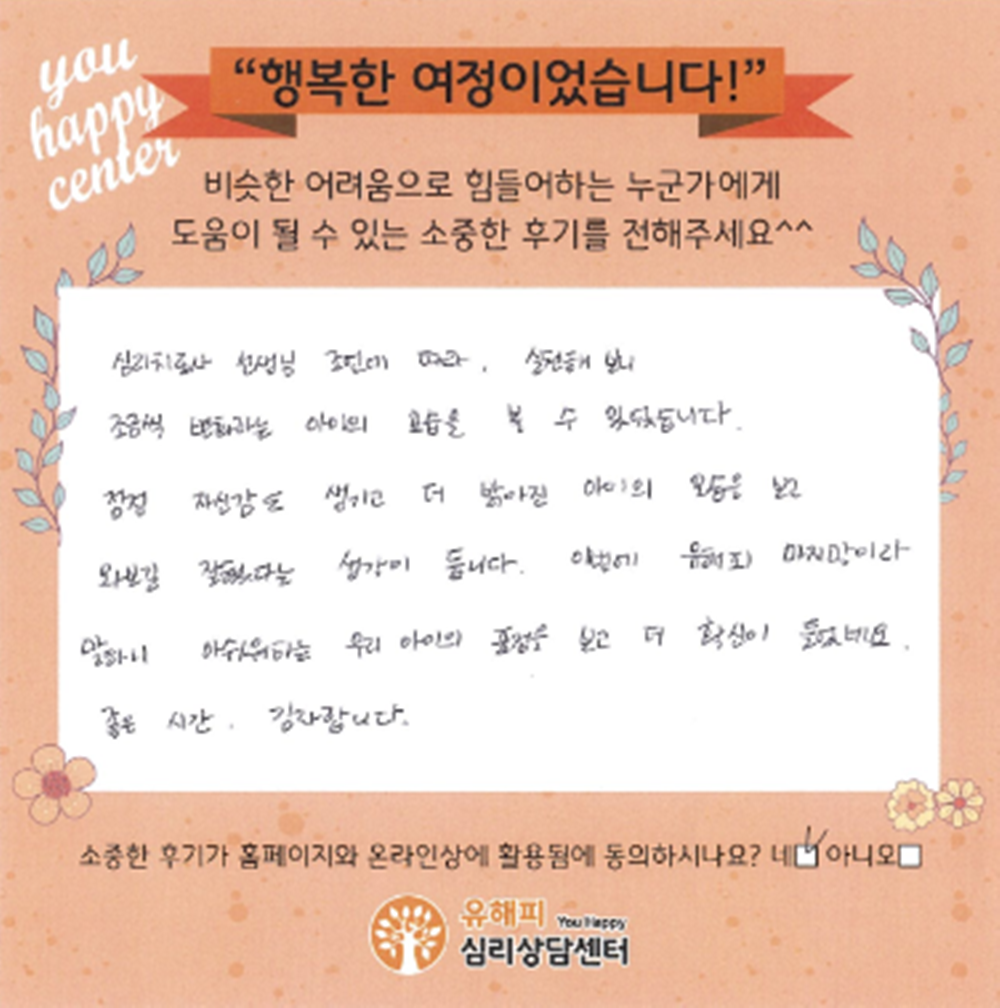 you
happy
center
“행복한 여정이었습니다!”
비슷한 어려움으로 힘들어하는 누군가에게
도움이 될 수 있는 소중한 후기를 전해주세요^^
심리치료사 선생님 조언에 따라, 실천해 보니
조금씩 변화하는 아이의 모습을 볼 수 있었습니다.
점점 자신감도 생기고 더 밝아진 아이의 모습을 보고
와보길 잘했다는 생각이 듭니다. 이번에 유해피 마지막이라
말하니 아쉬워하는 우리 아이의 표정을 보고 더 확신이 들었네요.
좋은 시간. 감사합니다.
소중한 후기가 홈페이지와 온라인상에 활용됨에 동의하시나요? 네 아니오
유해피 You Happy
심리상담센터